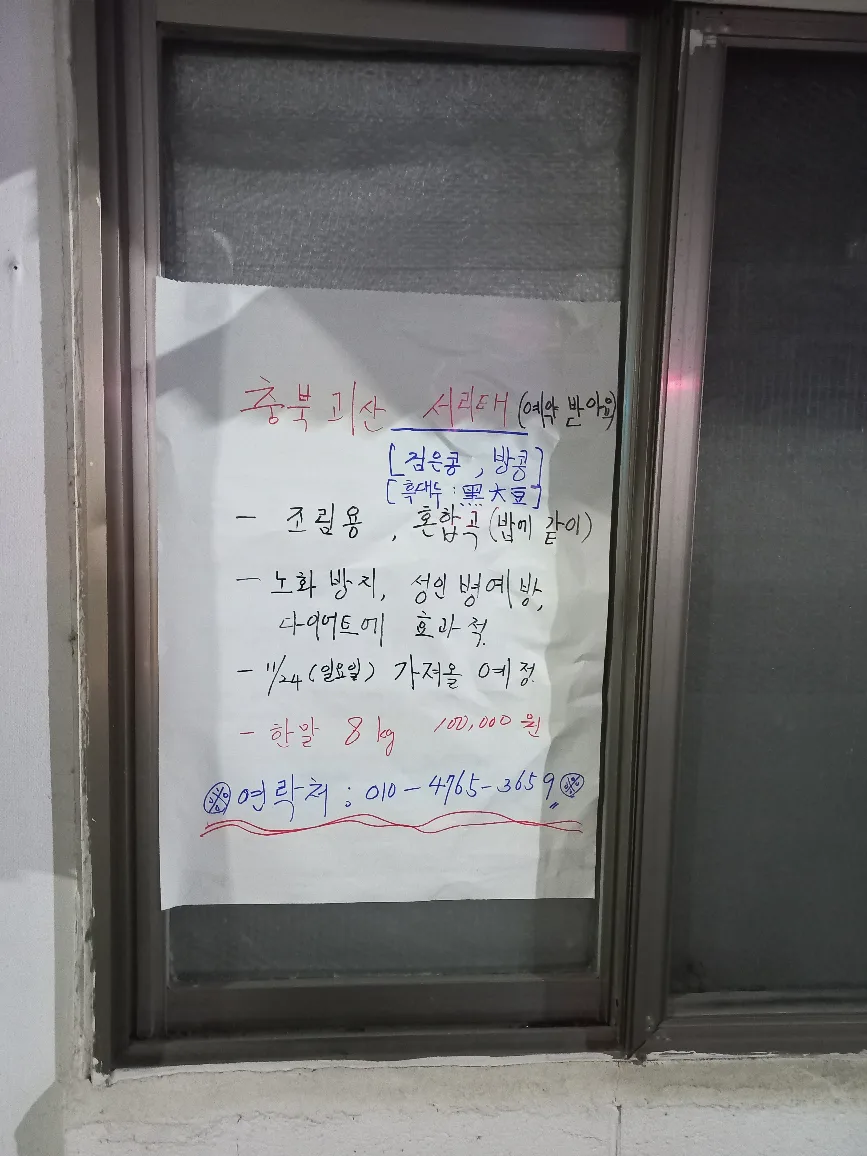 충북 괴산 서리태 (예약 받아요)
[검은콩, 방콩]
[흑대두 : 黑大豆]
- 조림용, 혼합곡 (밥에 같이)
- 노화 방지, 성인병예방,
다이어트에 효과적.
- 11/24 (일요일) 가져올 예정.
- 한말 8kg 100,000원
※ 연락처 : 010-4765-3659 ※